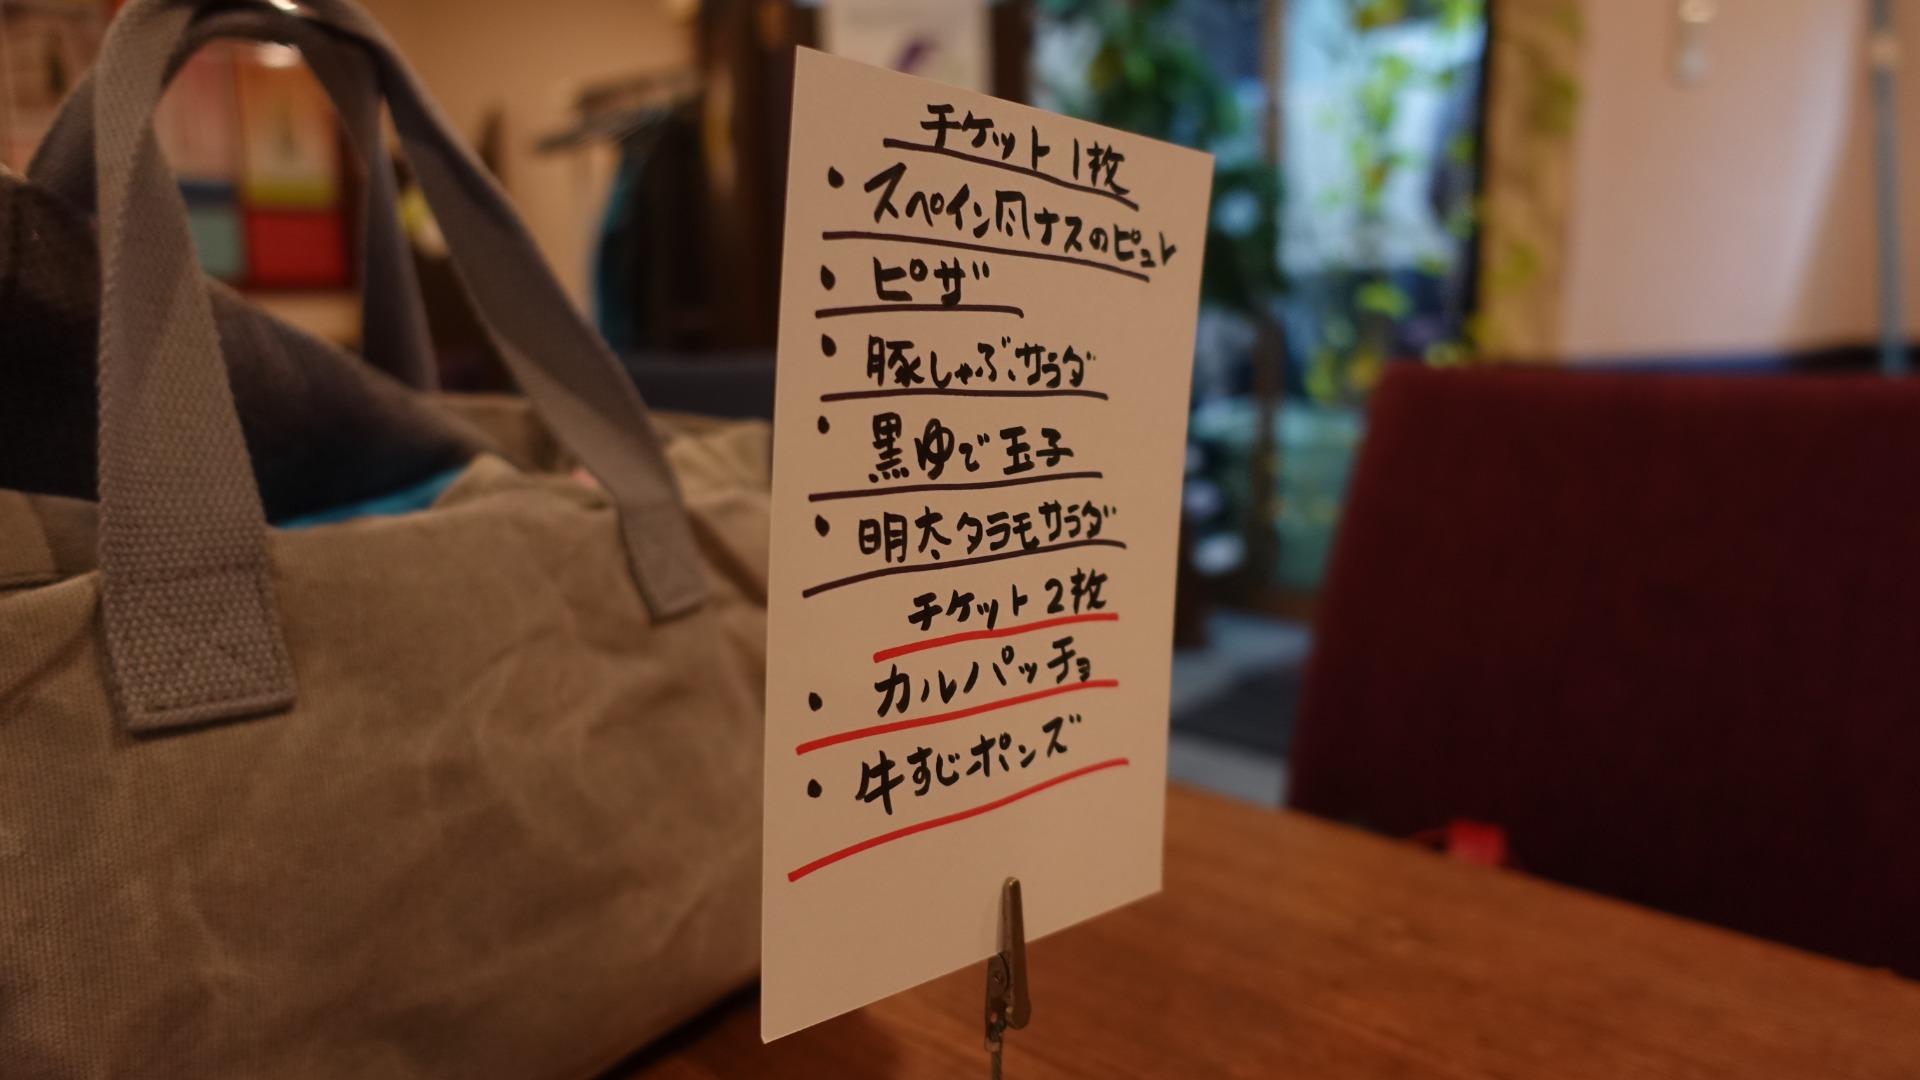 チケット1枚
・スペイン風ナスのピュレ
・ピザ
・豚しゃぶサラダ
・黒ゆで玉子
・明太タラモサラダ
チケット2枚
・カルパッチョ
・牛すじポンズ